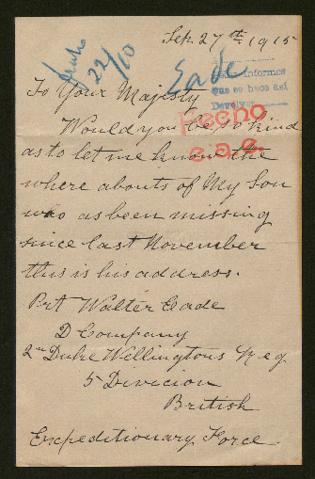 Sep. 27th 1915
22/10
Eade
informes
que se hace así
To Your Majesty
Hecho
Would you be so kind
e.a.e.
as to let me know the
where abouts of My Son
who as been missing
since last November
this is his address.
Prt Walter Eade
D Company
2nd Duke Wellingtons Reg
5 Divicion
British
Expeditionary Force